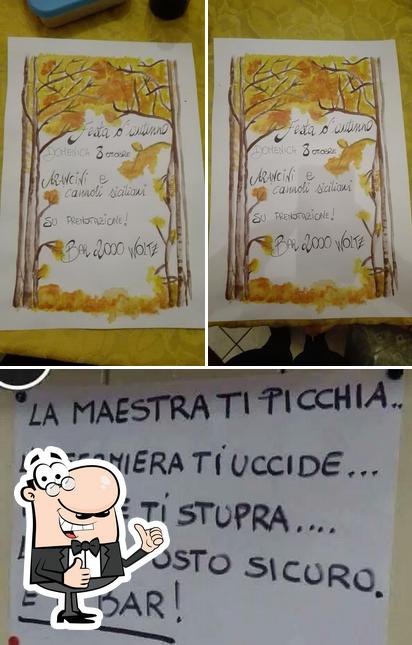 Festa d'autunno
DOMENICA 8 OTTOBRE
ARANCINI E
cannoli siciliani
SU PRENOTAZIONE!
BAR 2000 WOLTZ
Festa d'autunno
DOMENICA 8 OTTOBRE
ARANCINI E
cannoli siciliani
SU PRENOTAZIONE!
BAR 2000 WOLTZ
LA MAESTRA TI PICCHIA..
TI UCCIDE...
TI STUPRA....
SICURO.
BAR!